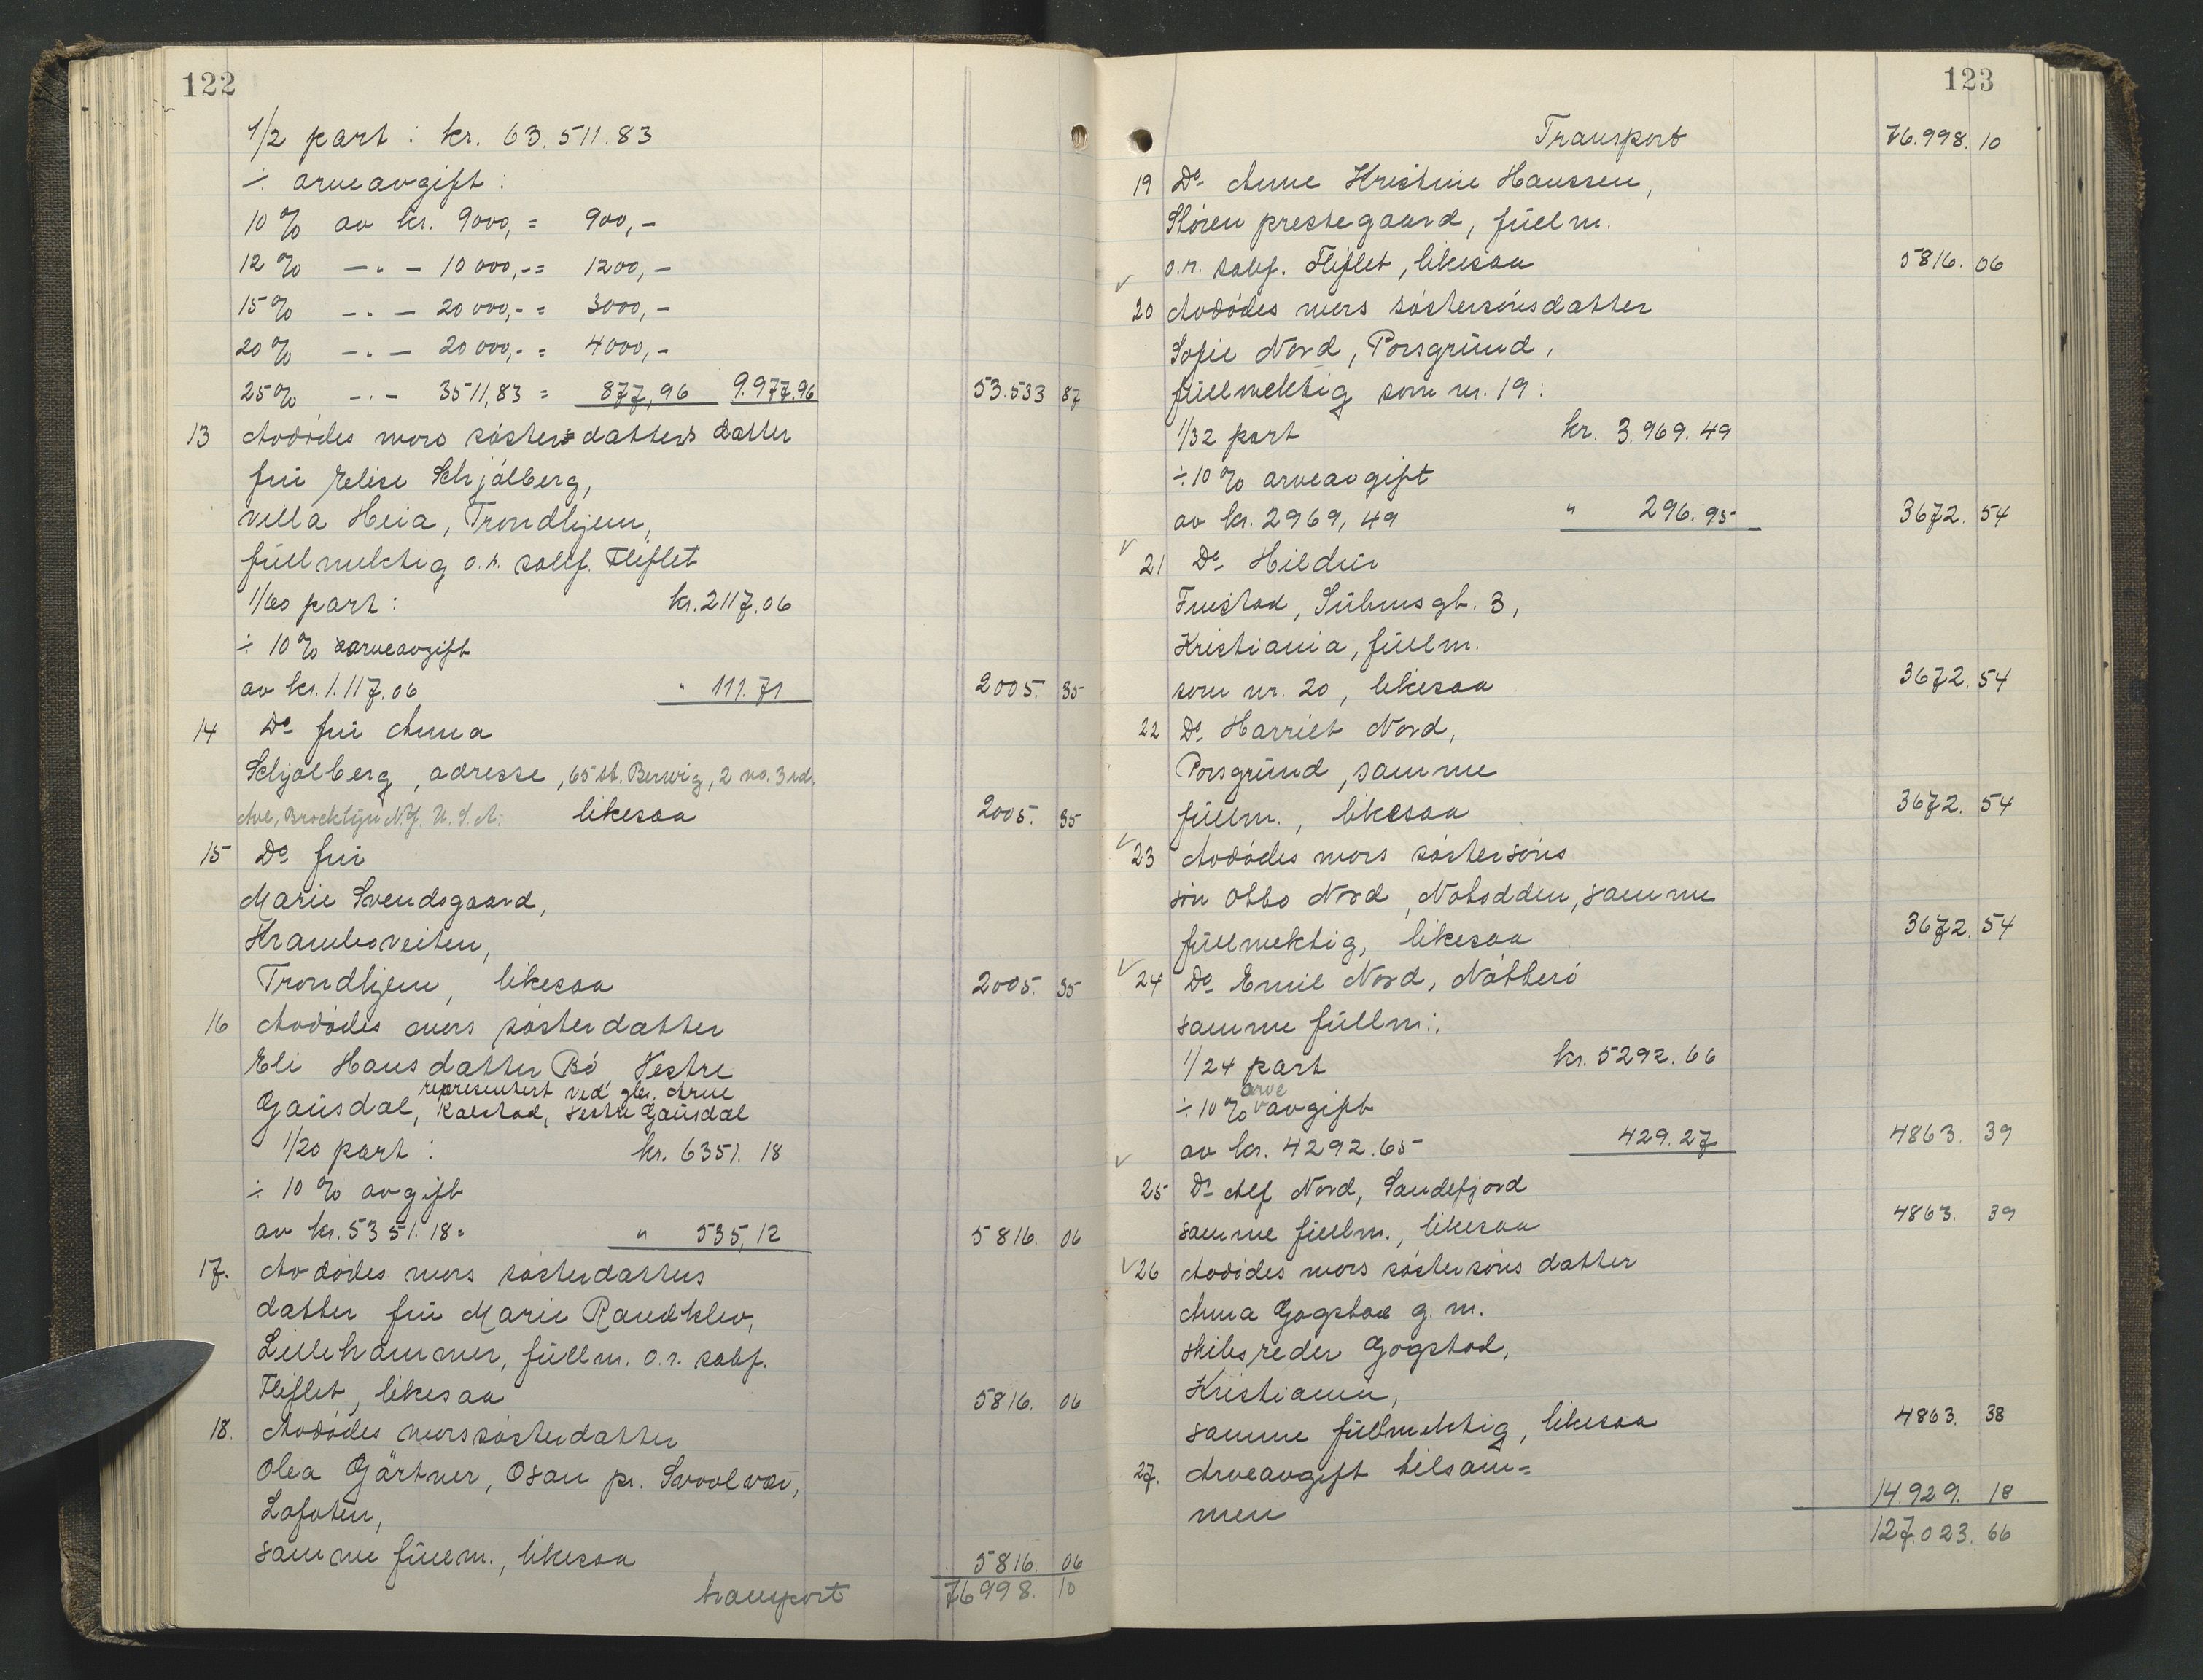 122
1/2 part : kr. 63.511.83
÷ arveavgift :
10 % av kr. 9000,- = 900,-
12 % -"- 10 000,- = 1200,-
15 % -"- 20 000,- = 3000,-
20 % -"- 20 000,- = 4000,-
25 % -"- 3511,83 = 877,96 9.977.96 53.533 87
13 Avdödes mors søsters datters datter
frú Elise Schjølberg,
villa Heia, Trondhjem,
fúllmektig o.r. sakf. Fliflet
1/60 part : kr. 2117.06
÷ 10 % arveavgift
av kr. 1.117.06 " 111.71 2005. 35
14 Do frú Anna
Schjølberg, adresse, 65 st. Berwig, 2 no. 3rd.
Ave, Brocklyn N.Y. U.S.A. likesaa 2005. 35
15 Do frú
Marie Svendsgaard,
Kramboveiten,
Trondhjem, likesaa 2005. 35
16 Avdödes mors søsterdatter
Eli Hansdatter Bö Vestre
representert ved gbr. Arne
Gaúsdal, Kalstad, Vestre Gaúsdal
1/20 part : kr. 6351. 18
÷ 10 % avgift
av kr. 5351.18 = " 535,12 5816. 06
17. Avdödes mors søsterdatters
datter frú Marie Randklev,
Lillehammer, fúllm. o.r. sakf.
Fliflet, likesaa 5816. 06
18. Avdödes mors søsterdatter
Olea Gärtner, Osan pr. Svolvær,
Lofoten,
samme fúllm., likesaa 5816. 06
transport 76998. 10
123
Transport 76.998. 10
19 Do Anne Kristine Hanssen,
Støren prestegaard, fúllm.
o.r. sakf. Fliflet, likesaa 5816. 06
20 Avdödes mors søstersönsdatter
Sofie Nord, Porsgrúnd,
fúllmektig som nr. 19 :
1/32 part kr. 3.969.49
÷ 10 % arveavgift
av kr. 2969,49 " 296.95 3672. 54
21 Do Hildúr
Frústad, 3,
Kristiania, fúllm.
som nr. 20, likesaa 3672. 54
22 Do Harriet Nord,
Porsgrúnd, samme
fúllm., likesaa 3672. 54
23 Avdödes mors søstersöns
sön Otto Nord, Notodden, samme
fúllmektig, likesaa 3672. 54
24 Do Emil Nord, Nötterö
samme fúllm :,
1/24 part kr. 5292.66
arve
÷ 10 % avgift
av kr. 4292.65 429.27 4863. 39
25 Do Alf Nord, Sandefjord
samme fúllm., likesaa 4863. 39
26 Avdödes mors søstersöns datter
Anna Gogstad g. m.
skibsreder Gogstad,
Kristiania,
samme fúllmektig, likesaa 4863. 38
27. Arveavgift tilsam=
men 14.929. 18
127.023. 66